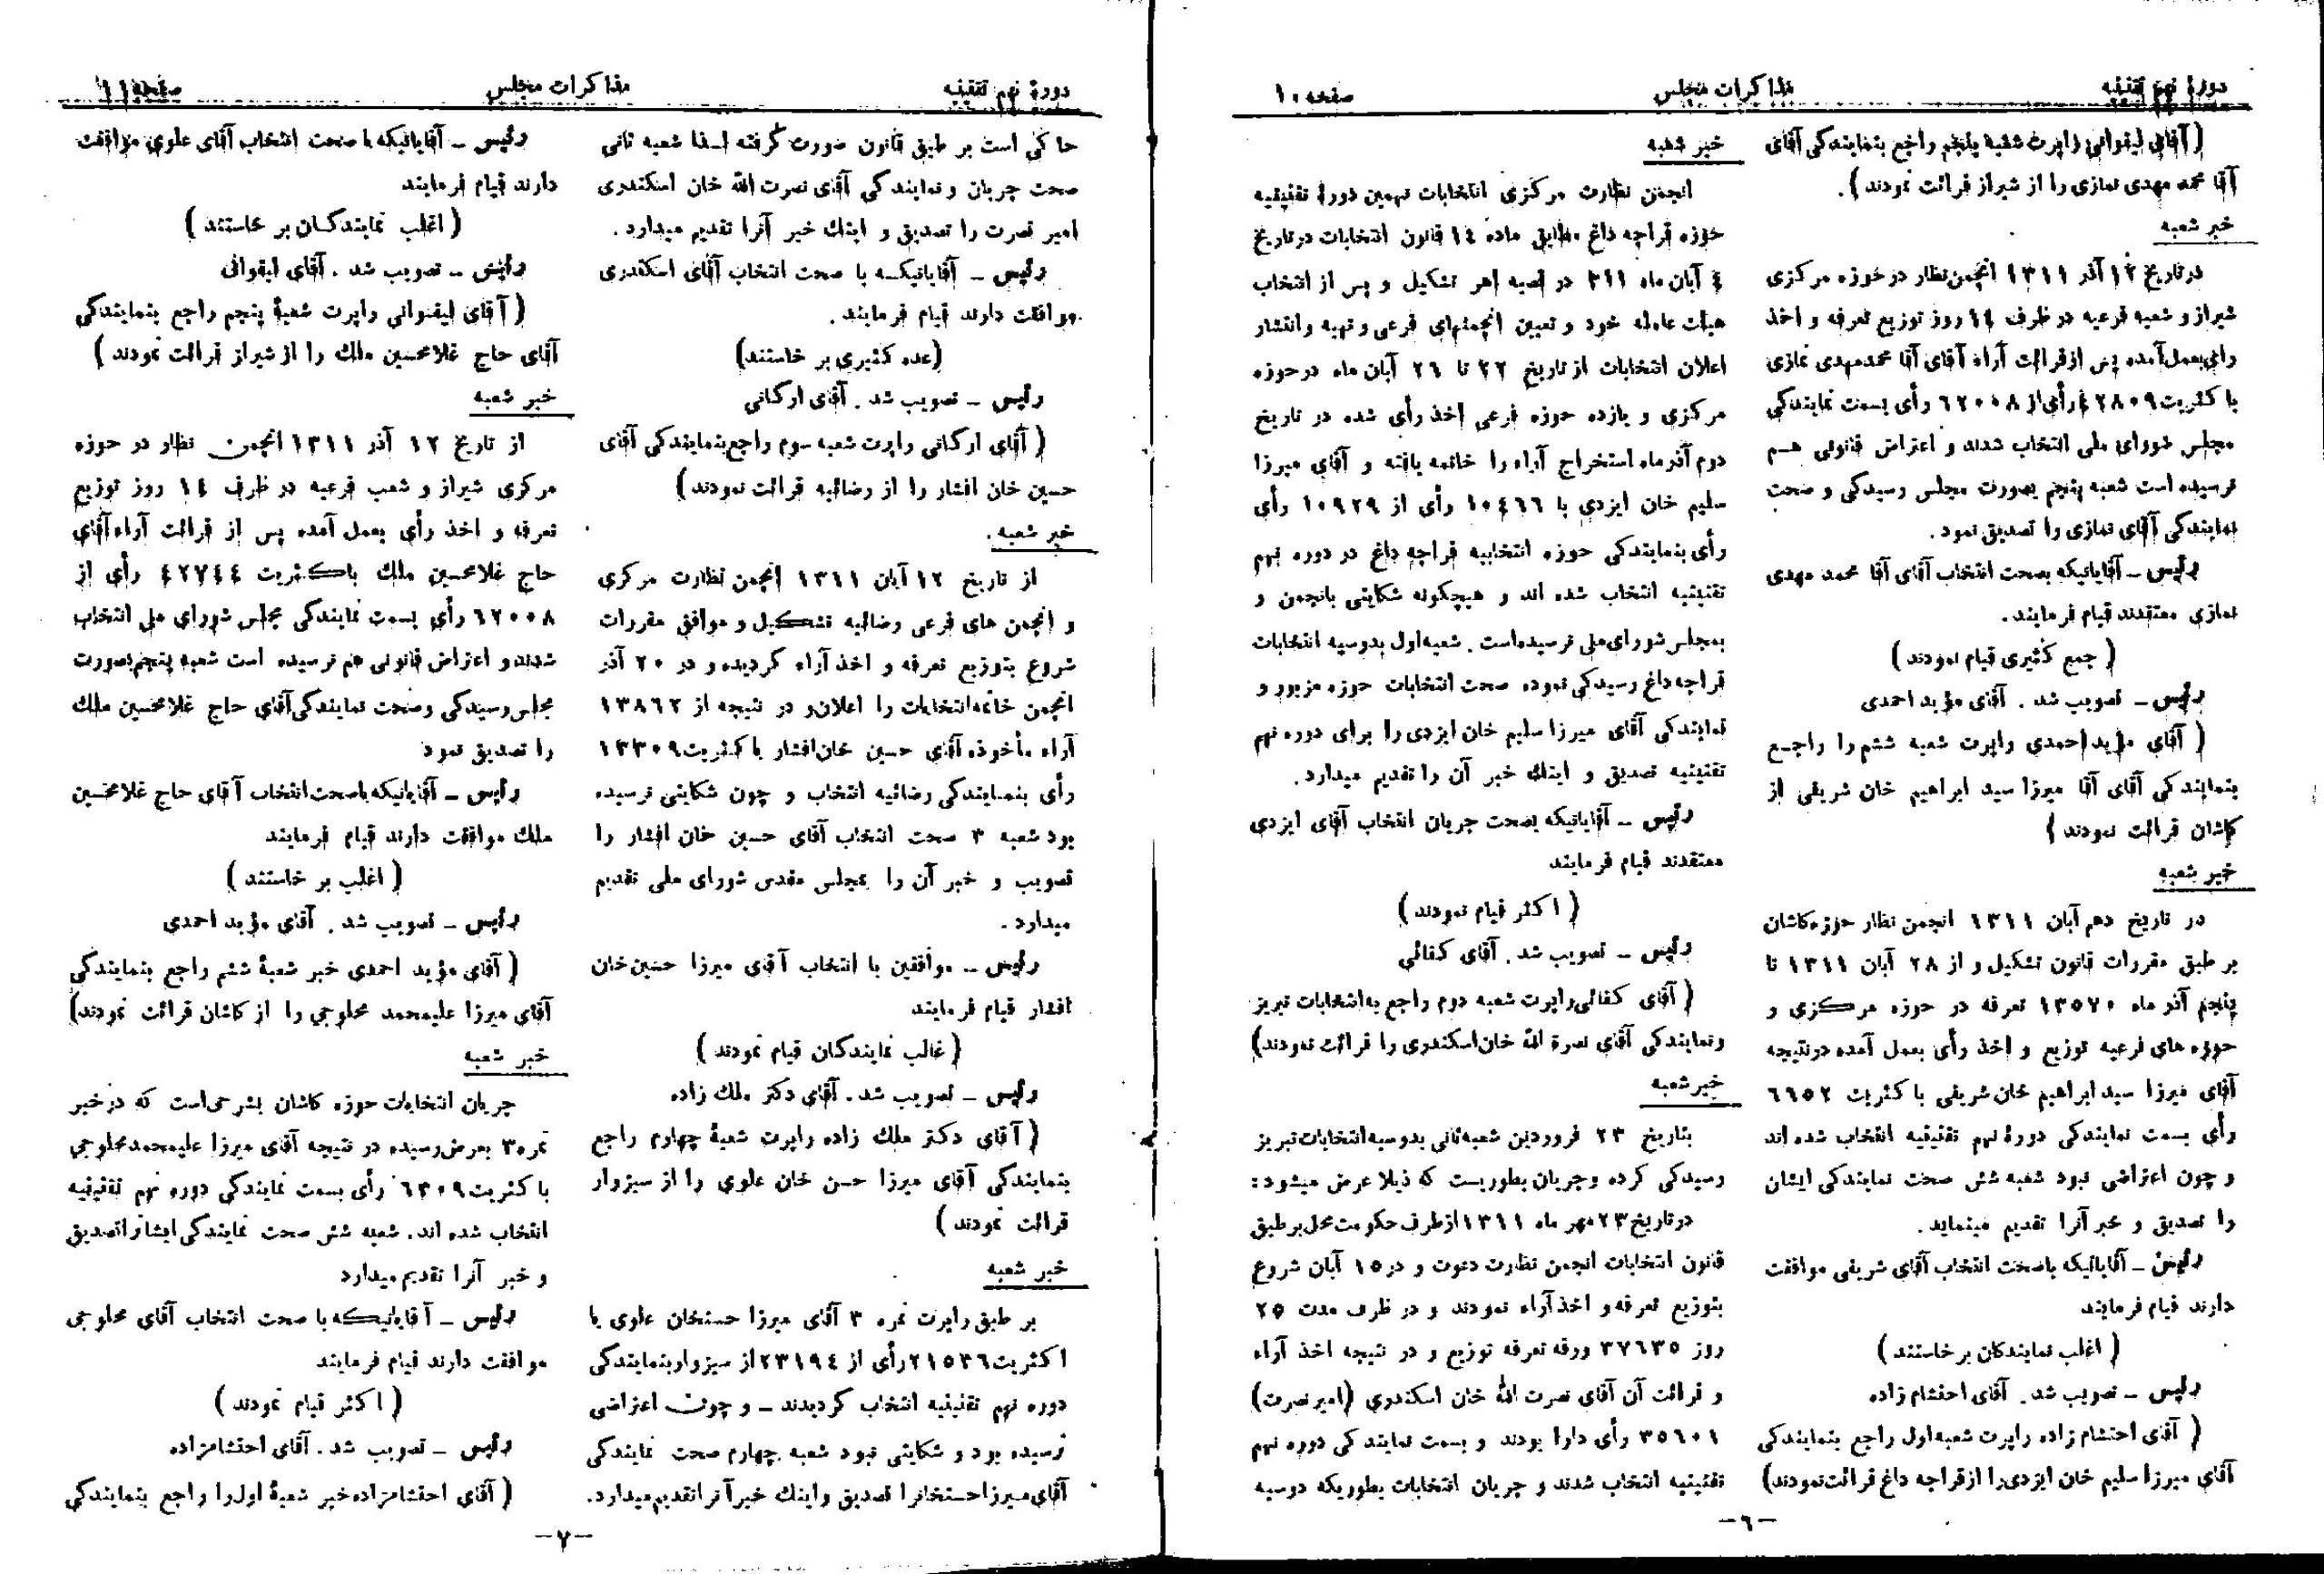 دورهٔ نهم تقنینیه
مذاکرات مجلس
صفحه ۱۰
(آقای لیقوانی راپرت شعبه پنجم راجع بنمایندگی آقای
آقا محمد مهدی نمازی را از شیراز قرائت نمودند).
خبر شعبه
در تاریخ ۱۲ آذر ۱۳۱۱ انجمن نظار در حوزه مرکزی
شیراز و شعبه فرعیه در ظرف ۱٤ روز توزیع تعرفه و اخذ
رأی بعمل آمده پس از قرائت آراء آقای آقا محمد مهدی نمازی
با کثریت ٤۲۸۰۹ رأی از ٦۲۰۰۸ رأی بسمت نمایندگی
مجلس شورای ملی انتخاب شدند و اعتراض قانونی هم
نرسیده است شعبه پنجم بصورت مجلس رسیدگی و صحت
نمایندگی آقای نمازی را تصدیق نمود.
رئیس ـ آقایانیکه بصحت انتخاب آقای آقا محمد مهدی
نمازی معتقدند قیام فرمایند.
( جمع کثیری قیام نمودند )
رئیس ـ تصویب شد . آقای مؤید احمدی
( آقای مؤید احمدی راپرت شعبه ششم را راجع
بنمایندگی آقای آقا میرزا سید ابراهیم خان شریفی از
کاشان قرائت نمودند )
خبر شعبه
در تاریخ دهم آبان ۱۳۱۱ انجمن نظار حوزه کاشان
بر طبق مقررات قانون تشکیل و از ۲۸ آبان ۱۳۱۱ تا
پنجم آذر ماه ۱۳۵۷۰ تعرفه در حوزه مرکزی و
حوزه های فرعیه توزیع و اخذ رأی بعمل آمده در نتیجه
آقای میرزا سید ابراهیم خان شریفی با کثریت ٦٦۵۲
رأی بسمت نمایندگی دورهٔ نهم تقنینیه انتخاب شده اند
و چون اعتراضی نبود شعبه شش صحت نمایندگی ایشان
را تصدیق و خبر آنرا تقدیم مینماید.
رئیس ـ آقایانیکه با صحت انتخاب آقای شریفی موافقت
دارند قیام فرمایند
( اغلب نمایندگان بر خاستند )
رئیس ـ تصویب شد. آقای احتشام زاده
( آقای احتشام زاده راپرت شعبه اول راجع بنمایندگی
آقای میرزا سلیم خان ایزدی را از قراجه داغ قرائت نمودند)
خبر شعبه
انجمن نظارت مرکزی انتخابات نهمین دورهٔ تقنینیه
حوزه قراجه داغ مطابق ماده ۱٤ قانون انتخابات در تاریخ
٤ آبان ماه ۳۱۱ در قصبه اهر تشکیل و پس از انتخاب
هیأت عامله خود و تعیین انجمنهای فرعی و تهیه و انتشار
اعلان انتخابات از تاریخ ۲۲ تا ۲٦ آبان ماه در حوزه
مرکزی و یازده حوزه فرعی اخذ رأی شده در تاریخ
دوم آذر ماه استخراج آراء را خاتمه یافته و آقای میرزا
سلیم خان ایزدی با ۱۰٤٦٦ رأی از ۱۰۹۲۹ رأی
رأی بنمایندگی حوزه انتخابیه قراجه داغ در دوره نهم
تقنینیه انتخاب شده اند و هیچگونه شکایتی بانجمن و
بمجلس شورای ملی نرسیده است . شعبه اول بدوسیه انتخابات
قراجه داغ رسیدگی نموده صحت انتخابات حوزه مزبور و
نمایندگی آقای میرزا سلیم خان ایزدی را برای دوره نهم
تقنینیه تصدیق و اینك خبر آن را تقدیم میدارد.
رئیس ـ آقایانیکه بصحت جریان انتخاب آقای ایزدی
معتقدند قیام فرمایند
( اکثر قیام نمودند )
رئیس ـ تصویب شد. آقای کفائی
( آقای کفائی راپرت شعبه دوم راجع به انتخابات تبریز
و نمایندگی آقای نصرة الله خان اسکندری را قرائت نمودند)
خبر شعبه
بتاریخ ۲۳ فروردین شعبه ثانی بدوسیه انتخابات تبریز
رسیدگی کرده و جریان بطوریست که ذیلا عرض میشود :
در تاریخ ۲۳ مهر ماه ۱۳۱۱ از طرف حکومت محل بر طبق
قانون انتخابات انجمن نظارت دعوت و در ۱۵ آبان شروع
بتوزیع تعرفه و اخذ آراء نمودند و در ظرف مدت ۲۵
روز ۳۷٦۳۵ ورقه تعرفه توزیع و در نتیجه اخذ آراء
و قرائت آن آقای نصرت الله خان اسکندری (امیر نصرت)
۳۵٦۰۱ رأی دارا بودند و بسمت نمایندگی دوره نهم
تقنینیه انتخاب شدند و جریان انتخابات بطوریکه دوسیه
ـ٦ـ
دورهٔ نهم تقنینیه
مذاکرات مجلس
صفحه ۱۱
حاکی است بر طبق قانون صورت گرفته لـذا شعبه ثانی
صحت جریان و نمایندگی آقای نصرت الله خان اسکندری
امیر نصرت را تصدیق و اینك خبر آنرا تقدیم میدارد.
رئیس ـ آقایانیکه با صحت انتخاب آقای اسکندری
موافقت دارند قیام فرمایند.
(عده کثیری بر خاستند)
رئیس ـ تصویب شد. آقای ارکانی
( آقای ارکانی راپرت شعبه سوم راجع بنمایندگی آقای
حسین خان افشار را از رضائیه قرائت نمودند)
خبر شعبه.
از تاریخ ۱۲ آبان ۱۳۱۱ انجمن نظارت مرکزی
و انجمن های فرعی رضائیه تشکیل و موافق مقررات
شروع بتوزیع تعرفه و اخذ آراء گردیده و در ۲۰ آذر
انجمن خاتمه انتخابات را اعلان و در نتیجه از ۱۳۸٦۲
آراء مأخوذه آقای حسین خان افشار با کثریت ۱۳۳۰۹
رأی بنمایندگی رضائیه انتخاب و چون شکایتی نرسیده
بود شعبه ۳ صحت انتخاب آقای حسین خان افشار را
تصویب و خبر آن را بمجلس مقدس شورای ملی تقدیم
میدارد.
رئیس ـ موافقین با انتخاب آقای میرزا حسین خان
افشار قیام فرمایند
( غالب نمایندگان قیام نمودند )
رئیس ـ تصویب شد. آقای دکتر ملك زاده
( آقای دکتر ملك زاده راپرت شعبهٔ چهارم راجع
بنمایندگی آقای میرزا حسن خان علوی را از سبزوار
قرائت نمودند )
خبر شعبه
بر طبق راپرت نمره ۳ آقای میرزا حسنخان علوی با
اکثریت ۲۱۵۳٦ رأی از ۲۳۱۹٤ از سبزوار بنمایندگی
دوره نهم تقنینیه انتخاب گردیدند ـ و چون اعتراضی
نرسیده بود و شکایتی نبود شعبه چهارم صحت نمایندگی
آقای میرزا حسنخانرا تصدیق و اینك خبر آنرا تقدیم میدارد.
رئیس ـ آقایانیکه با صحت انتخاب آقای علوی موافقت
دارند قیام فرمایند
( اغلب نمایندگان بر خاستند )
رئیس ـ تصویب شد. آقای لیقوانی
( آقای لیقوانی راپرت شعبهٔ پنجم راجع بنمایندگی
آقای حاج غلامحسین ملك را از شیراز قرائت نمودند )
خبر شعبه
از تاریخ ۱۲ آذر ۱۳۱۱ انجمن نظار در حوزه
مرکزی شیراز و شعب فرعیه در ظرف ۱٤ روز توزیع
تعرفه و اخذ رأی بعمل آمده پس از قرائت آراء آقای
حاج غلامحسین ملك باکثریت ٤۲۷٤٤ رأی از
٦۲۰۰۸ رأی بسمت نمایندگی مجلس شورای ملی انتخاب
شدند و اعتراض قانونی هم نرسیده است شعبه پنجم بصورت
مجلس رسیدگی و صحت نمایندگی آقای حاج غلامحسین ملك
را تصدیق نمود
رئیس ـ آقایانیکه با صحت انتخاب آقای حاج غلامحسین
ملك موافقت دارند قیام فرمایند
( اغلب بر خاستند )
رئیس ـ تصویب شد. آقای مؤید احمدی
( آقای مؤید احمدی خبر شعبهٔ ششم راجع بنمایندگی
آقای میرزا علیمحمد محلوجی را از کاشان قرائت نمودند)
خبر شعبه
جریان انتخابات حوزه کاشان بشرحی است که در خبر
نمره ۳ بعرض رسیده در نتیجه آقای میرزا علیمحمد محلوجی
با کثریت ٦۳۰۹ رأی بسمت نمایندگی دوره نهم تقنینیه
انتخاب شده اند. شعبه شش صحت نمایندگی ایشانرا تصدیق
و خبر آنرا تقدیم میدارد
رئیس ـ آقایانیکه با صحت انتخاب آقای محلوجی
موافقت دارند قیام فرمایند
( اکثر قیام نمودند )
رئیس ـ تصویب شد. آقای احتشامزاده
( آقای احتشامزاده خبر شعبهٔ اول را راجع بنمایندگی
ـ۷ـ